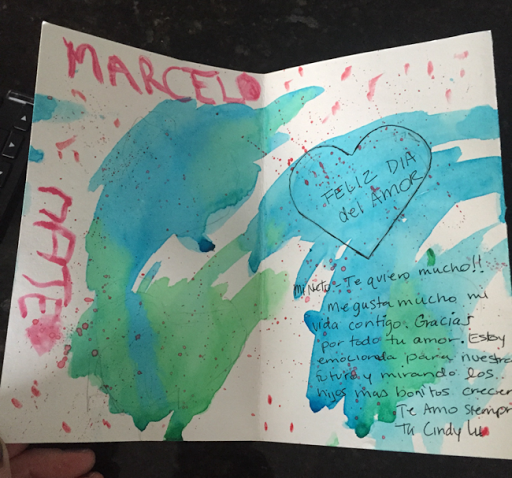 MARCELO
MATE
FELIZ DIA
del AMOR
Te quiero mucho!!
Me gusta mucho mi
vida contigo. Gracias
por todo tu amor. Estoy
emocionda para nuestro
futuro y mirando los
hijos mas bonitos crecer
Te Amo siempr
Tu Cindy Lu